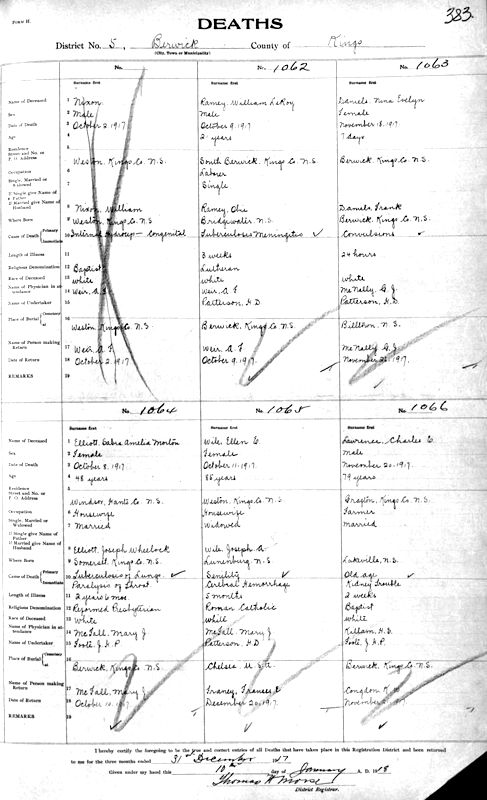 FORM H.
383.
DEATHS
District No. 5, Berwick County of Kings
(City, Town or Municipality)
No. No. 1062 No. 1063
Surname first Surname first Surname first
Name of Deceased 1 Nixon Ramey, William LeRoy Daniels, Nina Evelyn
Sex 2 Male Male Female
Date of Death 3 October 2, 1917 October 9, 1917 November 18, 1917
Age 4 2 years 7 days
Residence 5
Street and No. or P. O. Address Weston, Kings Co. N.S. South Berwick, Kings Co. N.S. Berwick, Kings Co. N.S.
Occupation 6 Labour
Single, Married or Widowed 7 Single
If Single give Name of Father
If Married give Name of Husband 8 Nixon, William Ramey, Daniels, Frank
Where Born 9 Weston, Kings Co. N.S. Bridgewater N.S. Berwick, Kings Co. N.S.
Cause of Death Primary Immediate 10 Congenital Tuberculosis Meningitis Convulsions
Length of Illness 11 3 weeks 24 hours
Religious Denomination 12 Baptist Lutheran
Race of Deceased 13 White white white
Name of Physician in attendance 14 Weir, A. F. Weir, A. F. McNally, G. J.
Name of Undertaker 15 Patterson, H. D. Patterson, H. D.
Place of Burial Cemetery at 16 Weston, Kings Co. N.S. Berwick, Kings Co. N.S. Billtown, N.S.
Name of Person making Return 17 Weir, A. F. Weir, A. F. McNally, G. J.
Date of Return 18 October 2, 1917 October 9, 1917 November 1917
REMARKS 19
No. 1064 No. 1065 No. 1066
Surname first Surname first Surname first
Name of Deceased 1 Elliott, Amelia Morton Wile, Ellen C. Lawrence, Charles E.
Sex 2 Female Female Male
Date of Death 3 October 8, 1917 October 11, 1917 November 20, 1917
Age 4 48 years 85 years 79 years
Residence 5
Street and No. or P. O. Address Windsor, Hants Co. N.S. Weston, Kings Co. N.S. Grafton, Kings Co. N.S.
Occupation 6 Housewife Housewife Farmer
Single, Married or Widowed 7 Married Widowed married
If Single give Name of Father
If Married give Name of Husband 8 Elliott, Joseph Wheelock Wile, Joseph A.
Where Born 9 Somerset, Kings Co. N.S. Lunenburg, N.S. Lakeville, N.S.
Cause of Death Primary Immediate 10 Tuberculosis of Lungs Senility Old age
Paralysis of Throat Cerebral Hemorrhage Kidney Trouble
Length of Illness 11 2 years 6 mos. 5 months 2 weeks
Religious Denomination 12 Reformed Presbyterian Roman Catholic Baptist
Race of Deceased 13 White White white
Name of Physician in attendance 14 McFall, Mary J. McFall, Mary J. Killam, H. E.
Name of Undertaker 15 Foote, J. H. P. Patterson, H. D. Foote, J. H. P.
Place of Burial Cemetery at 16 Berwick, Kings Co. N.S. Chelsea, U.S.A. Berwick, Kings Co. N.S.
Name of Person making Return 17 McFall, Mary J. Franey, Frances Congdon
Date of Return 18 October 10, 1917 December 20, 1917 November 1917
REMARKS 19
I hereby certify the foregoing to be the true and correct entries of all Deaths that have taken place in this Registration District and been returned
to me for the three months ended 31st December 1917
Given under my hand this 10th day of January A. D. 1918
Thomas H. Morse
District Registrar.